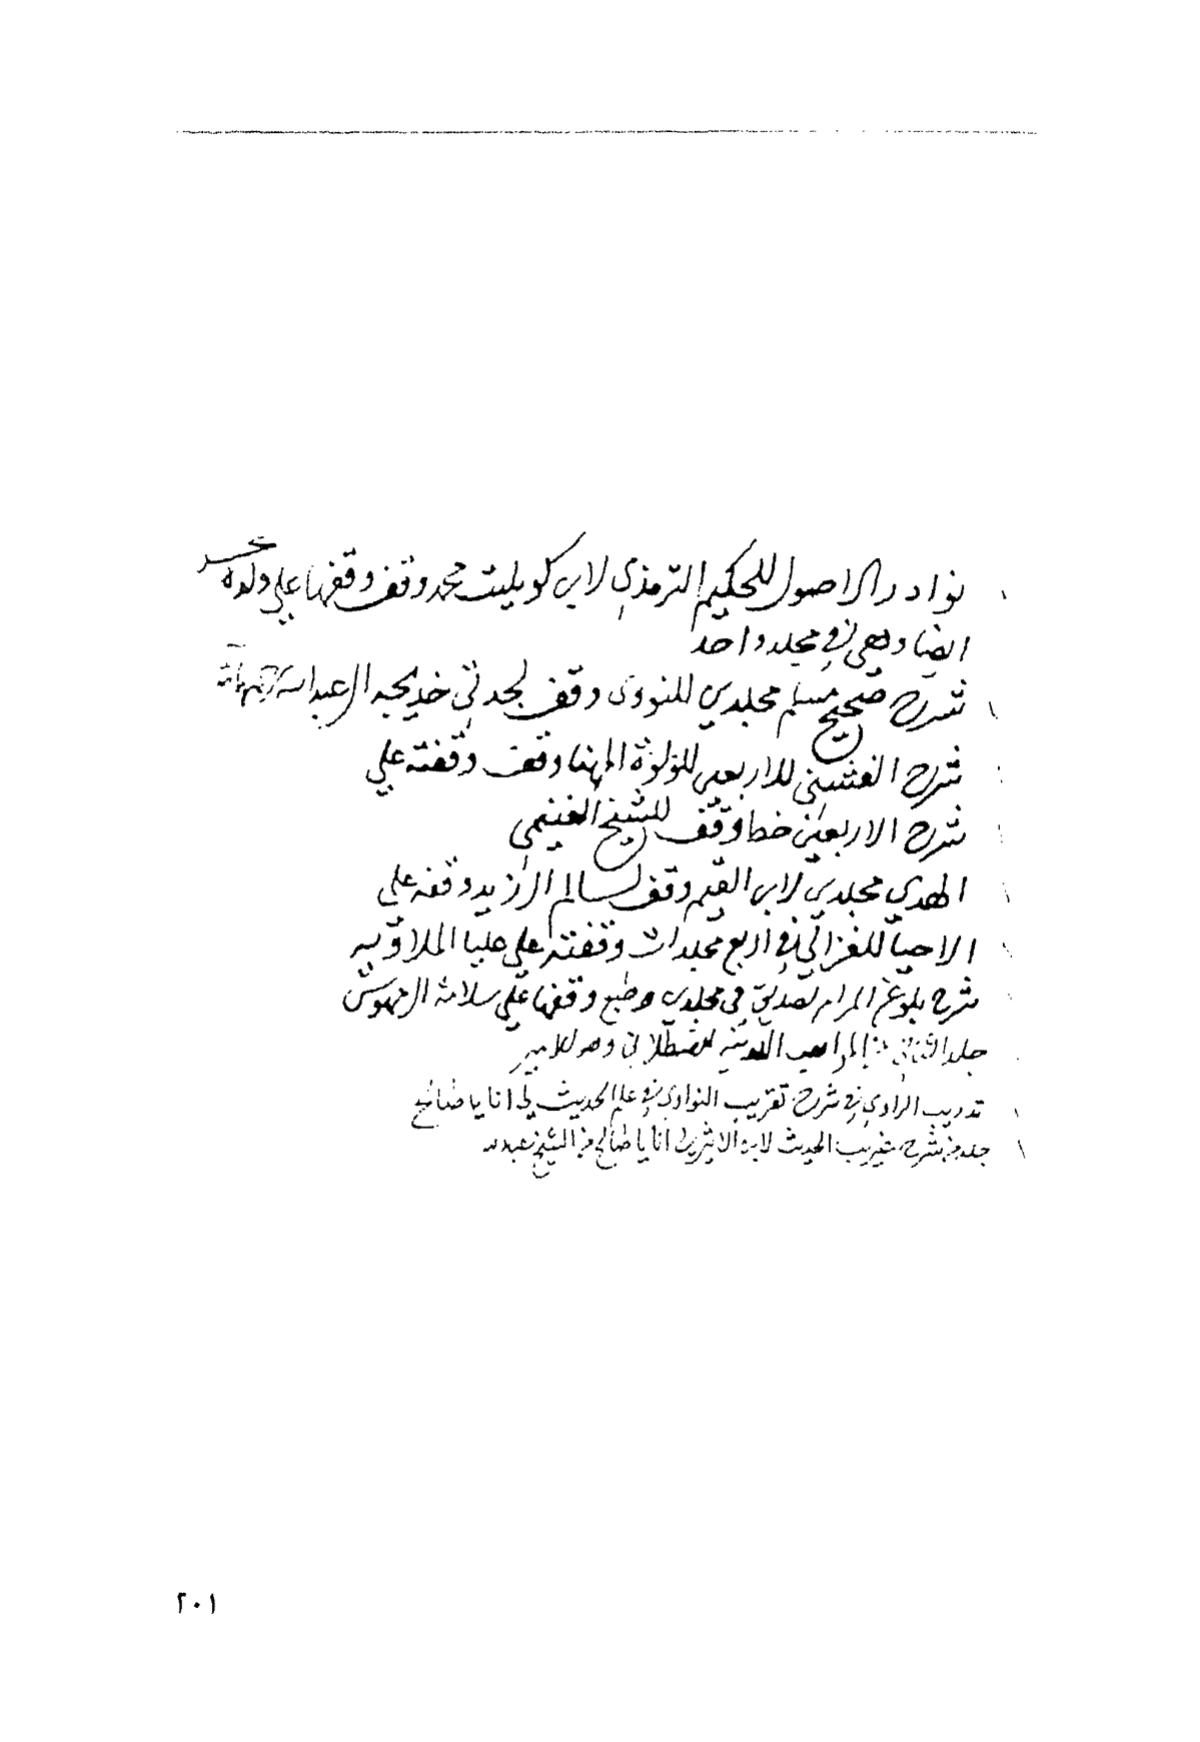 ١ نوادر الاصول للحكيم الترمذي لابي كويليت محمد وقف وقفها علي ولده محمد
ايضا وهي في مجلد واحد
١ شرح صحيح مسلم مجلدين للنووى وقف لجدتي خديجه ال عبدالله
شرح الفشني للاربعين للؤلوة المهنا وقف وقفته علي
شرح الاربعين خط وقف للشيخ الغنيمي
١ الهدي مجلدين لابن القيم وقف لسالم الرزيد وقفه علي
١ الاحيا للغزالي في اربع مجلدات وقفته علي عليا الملا
شرح بلوغ المرام لصديق في مجلدين وطبع وقفها علي سلامة
جلد الثاني من المواهب اللدنيه للقسطلاني وهو
١ تدريب الراوي في شرح تقريب النواوي في علم الحديث لي انا يا صالح
١ جلد من شرح غريب الحديث لابن الاثير لي انا يا صالح من الشيخ
٢٠١